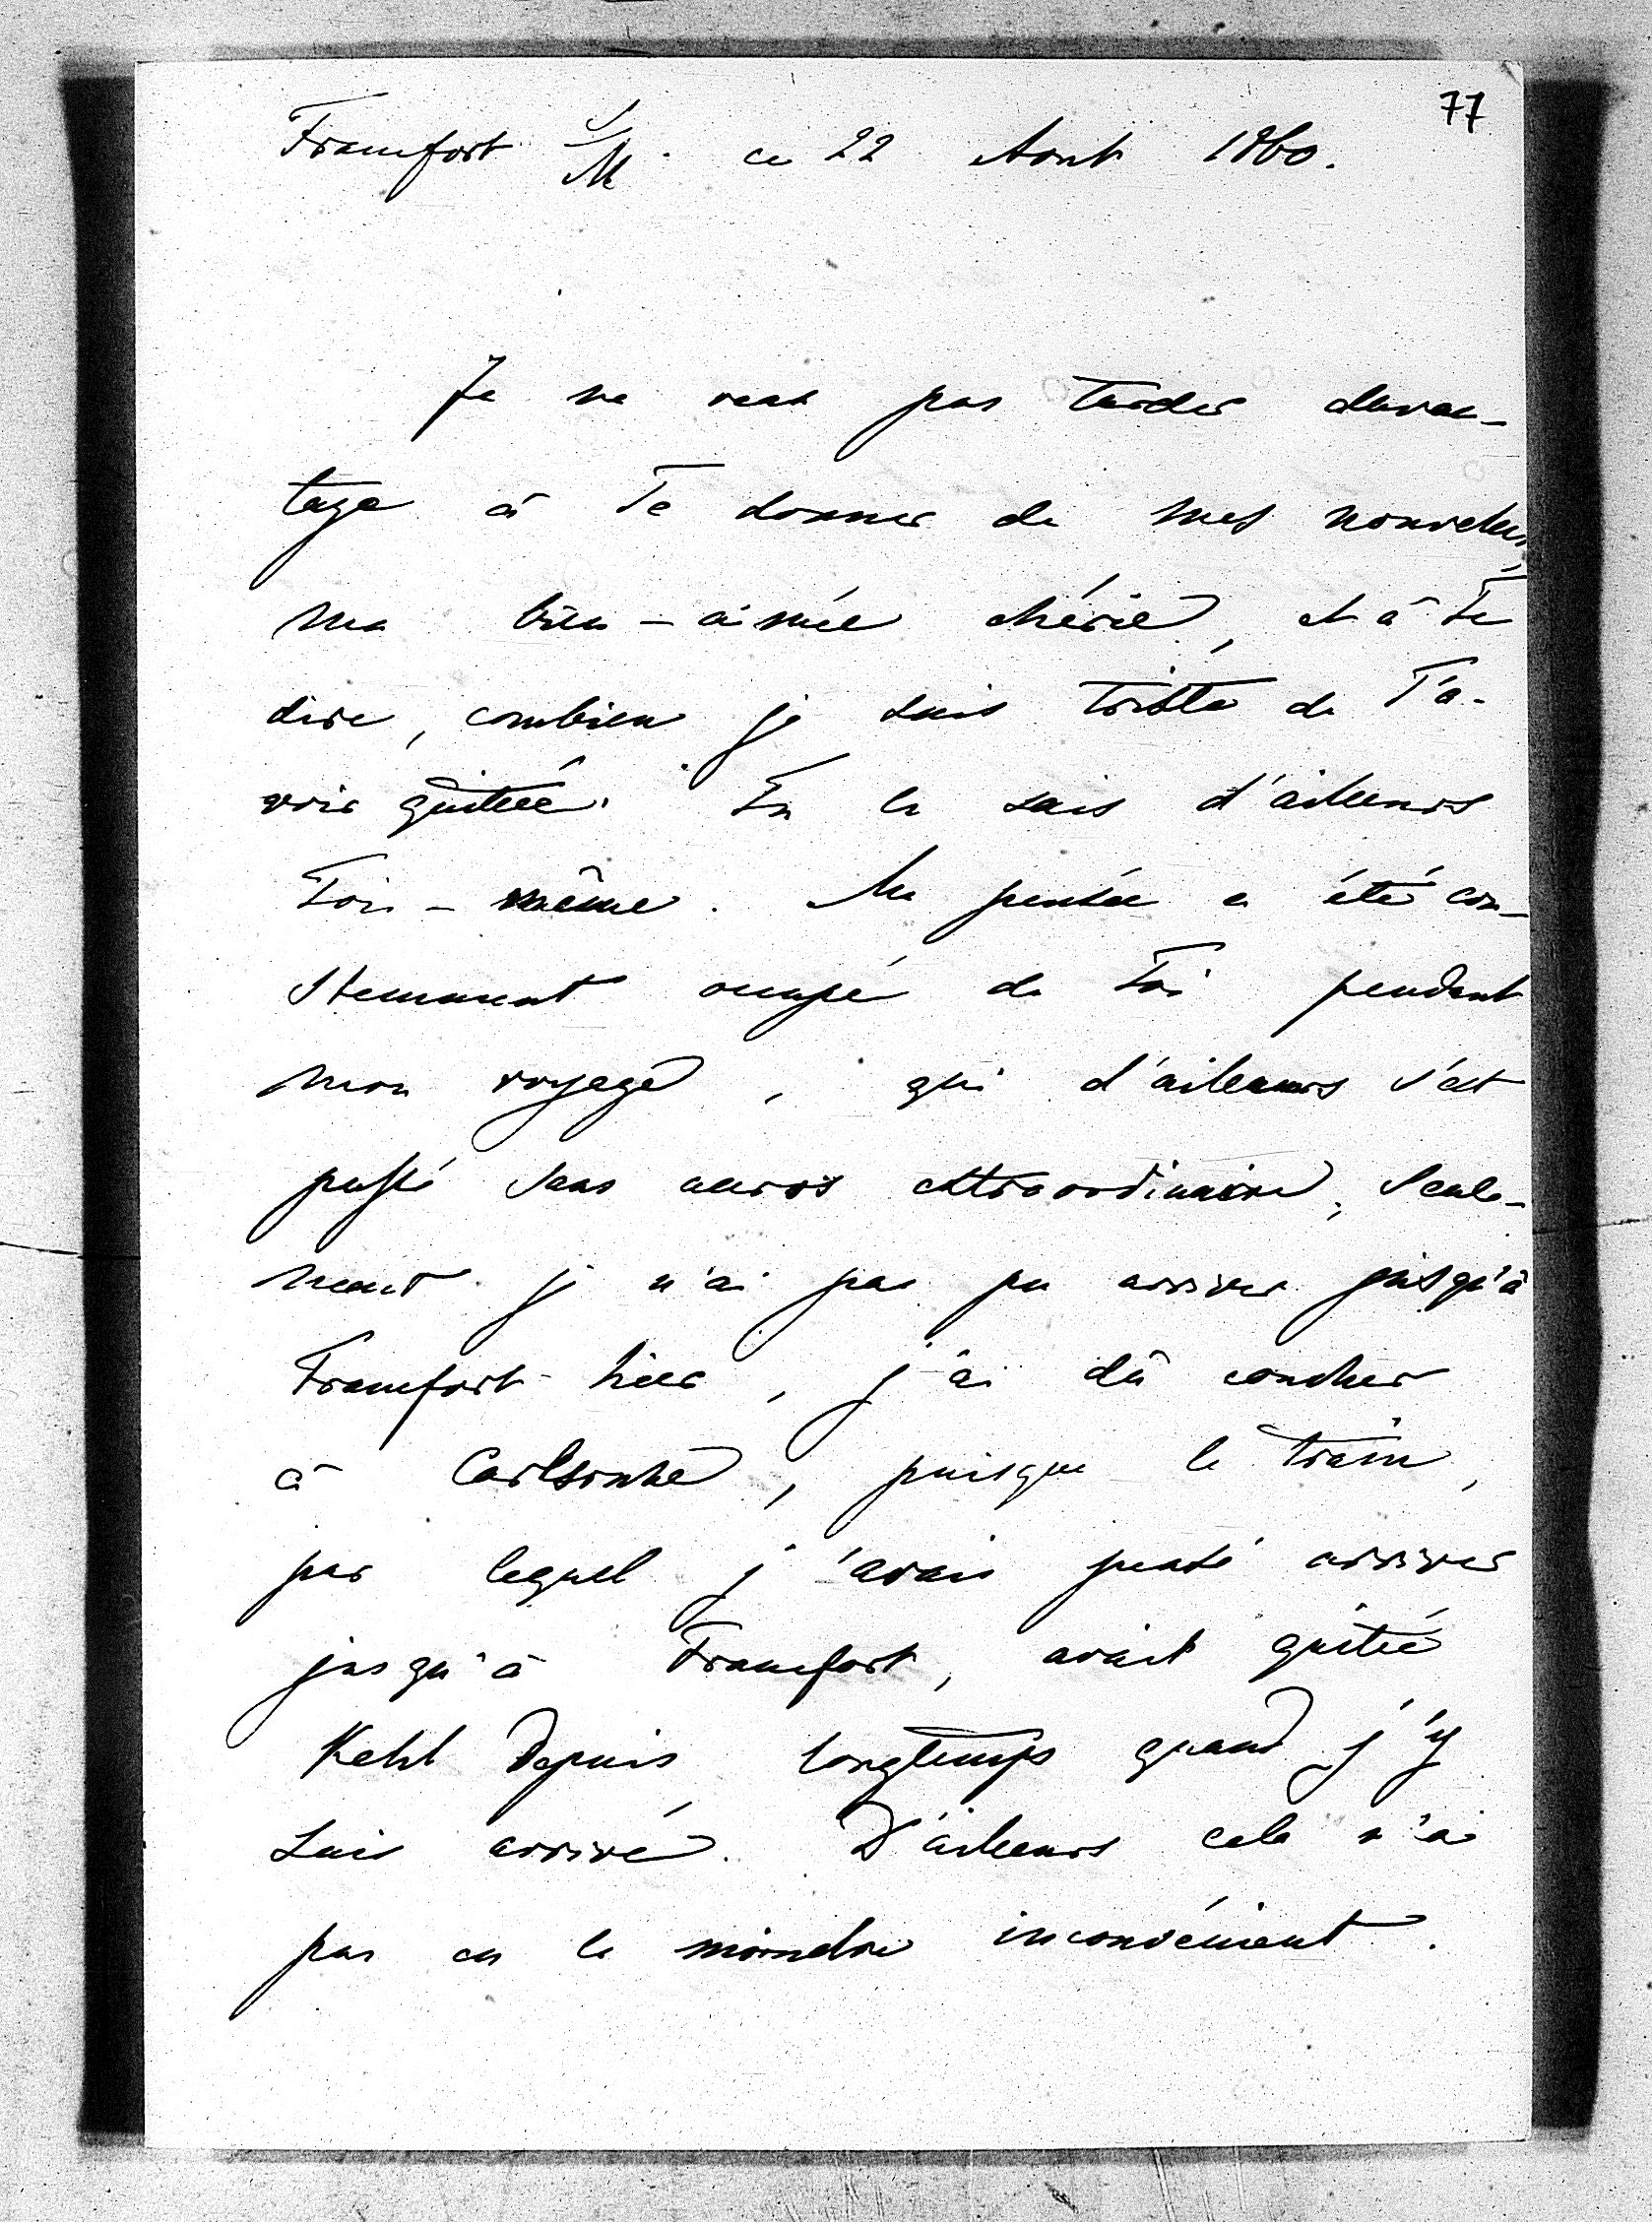 77
Francfort s/M. ce 22 Aout 1860.
Je ne veux pas tarder davan-
tage à Te donner de mes nouvelles,
ma bien-aimée chérie, et à Te
dire, combien je suis triste de T'a-
voir quittée. Tu le sais d'ailleurs
Toi-même. Ma pensée a été con-
stamment occupée de Toi pendant
mon voyage, qui d'ailleurs s'est
passé sans accros extraordinaire; seule-
ment je n'ai pas pu arriver jusqu'à
Francfort hier, j'ai dû coucher
à Carlsruhe, puisque le train,
par lequel j'avais pensé arriver
jusqu'à Francfort, avait quitté
Kehl depuis longtemps quand j'y
suis arrivé. D'ailleurs cela n'a
pas eu le moindre inconvénient.